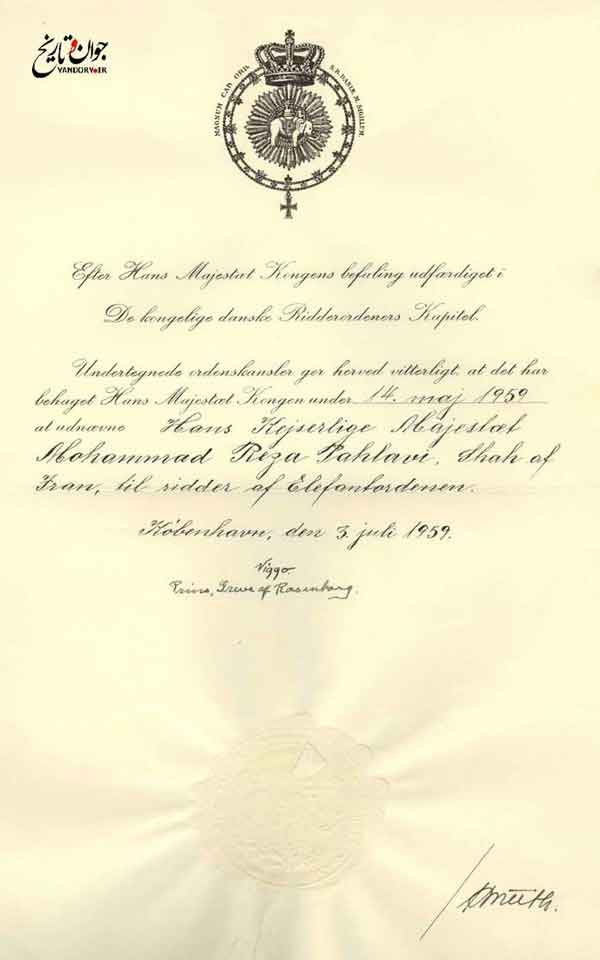 جوان و تاریخ
YANDORV.IR
MAGNUM CAP. ORD. S. R. DANIÆ M. SIGILLUM
Efter Hans Majestæt Kongens befaling udfærdiget i
De kongelige danske Ridderordeners Kapitel.
Undertegnede ordenskansler gør herved vitterligt, at det har
behaget Hans Majestæt Kongen under 14. maj 1959
at udnævne Hans Kejserlige Majestæt
Mohammad Reza Pahlavi, Shah af
Iran, til ridder af Elefantordenen.
København, den 3. juli 1959.
Viggo
Prins, Greve af Rosenborg.